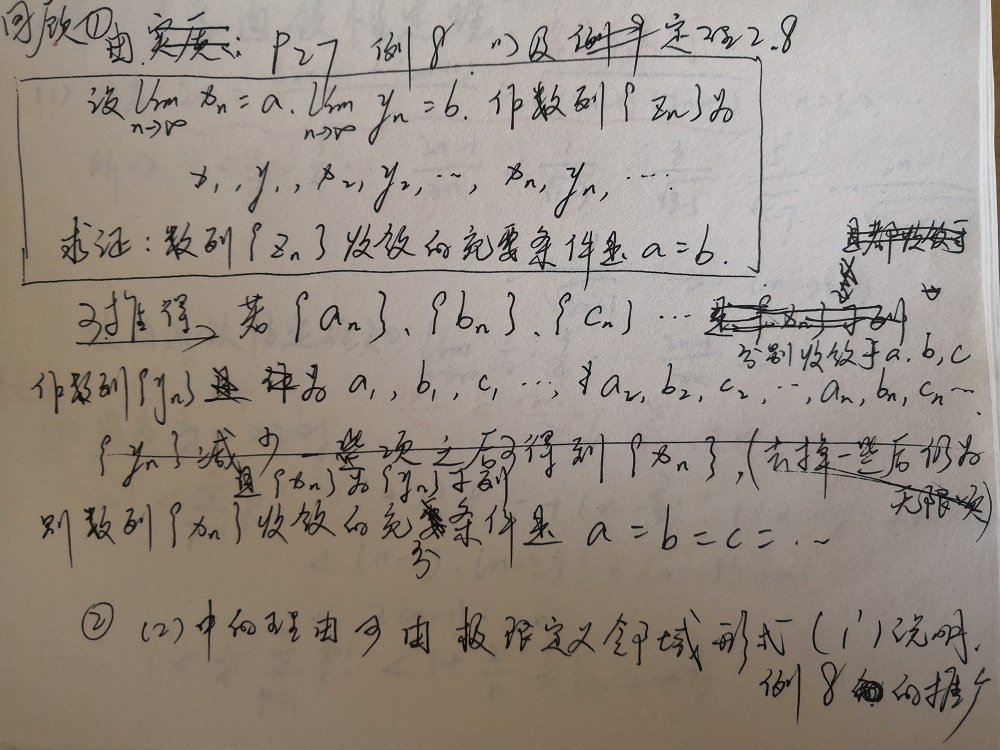 回顾① 由 P27 例8 以及 定理2.8
设 lim n→∞ xn = a. lim n→∞ yn = b. 作数列{zn}为
x1, y1, x2, y2, …, xn, yn, …
求证: 数列{zn}收敛的充要条件是 a = b.
可推得 若{an}、{bn}、{cn} …
分别收敛于a. b, c
作数列{yn} 为 a1, b1, c1, …, a2, b2, c2, …, an, bn, cn …
{yn}减少一些项之后可得到{xn}, (去掉一些后仍为无限项)
且{xn}为{yn}子列
则数列{xn}收敛的充分条件是 a = b = c = …
② (2)中的理由可由极限定义邻域形式 (1')说明.
例8 的推广